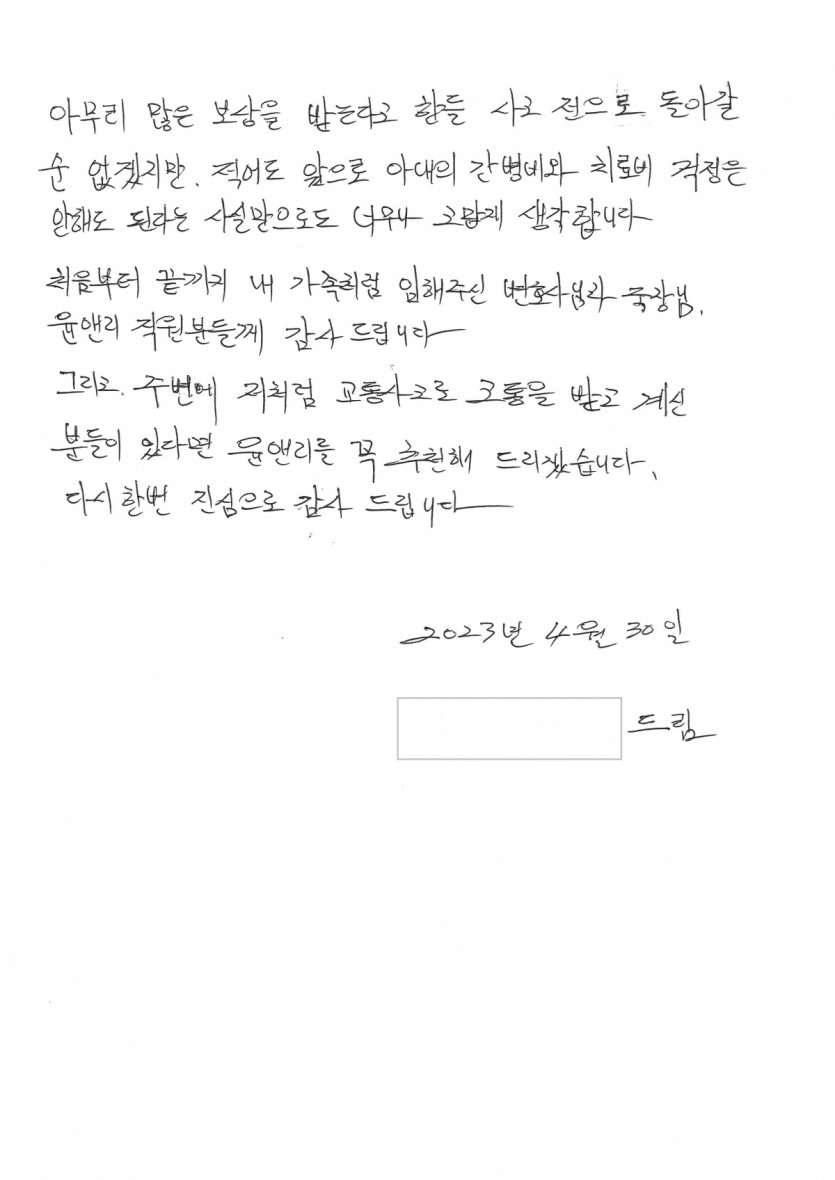 아무리 많은 보상을 받는다고 한들 사고 전으로 돌아갈
순 없겠지만. 적어도 앞으로 아내의 간병비와 치료비 걱정은
안해도 된다는 사실만으로도 너무나 고맙게 생각합니다
처음부터 끝까지 내 가족처럼 임해주신 변호사님과 국장님,
윤앤리 직원분들께 감사 드립니다
그리고. 주변에 저처럼 교통사고로 고통을 받고 계신
분들이 있다면 윤앤리를 꼭 추천해 드리겠습니다.
다시한번 진심으로 감사 드립니다
2023년 4월 30일
드림